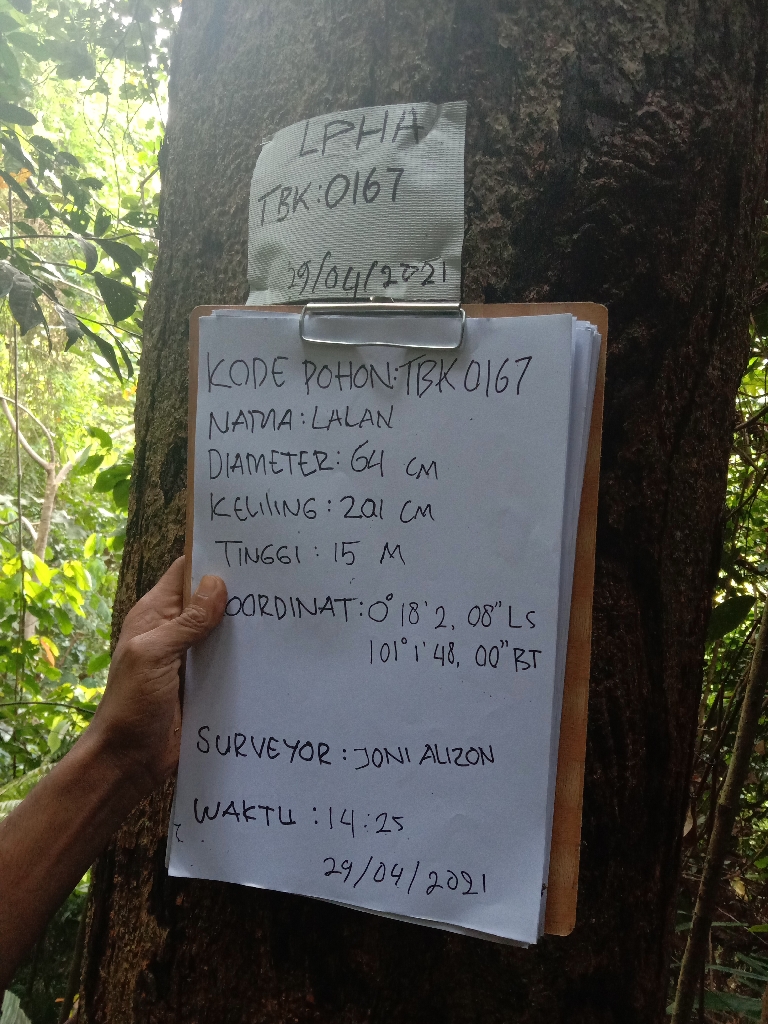 LPHA
TBK:0167
29/04/2021
KODE POHON:TBK 0167
NAMA:LALAN
DIAMETER: 64 CM
KELILING: 201 CM
TINGGI: 15 M
OORDINAT: 0° 18' 2, 08" LS
101° 1' 48, 00" BT
SURVEYOR: JONI ALIZON
WAKTU: 14:25
29/04/2021